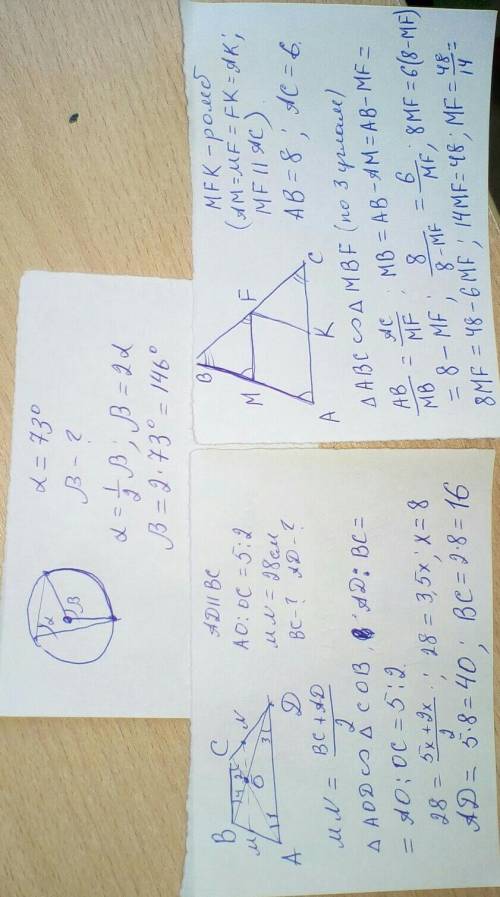 α = 73°
β - ?
α = 1/2 β ; β = 2α
β = 2 · 73° = 146°
α
β
B
C
M
N
O
A
D
1
4
2
3
AD || BC
AO : OC = 5 : 2
MN = 28 см
BC - ? AD - ?
MN = (BC + AD)/2
Δ AOD ∽ Δ COB, AD : BC =
= AO : OC = 5 : 2
28 = (5x + 2x)/2 ; 28 = 3,5x ; x = 8
AD = 5·8 = 40 ; BC = 2·8 = 16
B
M
F
A
K
C
MFK - ромб
(AM = MF = FK = AK ;
MF || AC)
AB = 8 ; AC = 6.
Δ ABC ∽ Δ MBF (по 3 углам)
AB/MB = AC/MF ; MB = AB - AM = AB - MF =
= 8 - MF ; 8/(8 - MF) = 6/MF ; 8MF = 6(8 - MF)
8MF = 48 - 6MF ; 14MF = 48 ; MF = 48/14 =